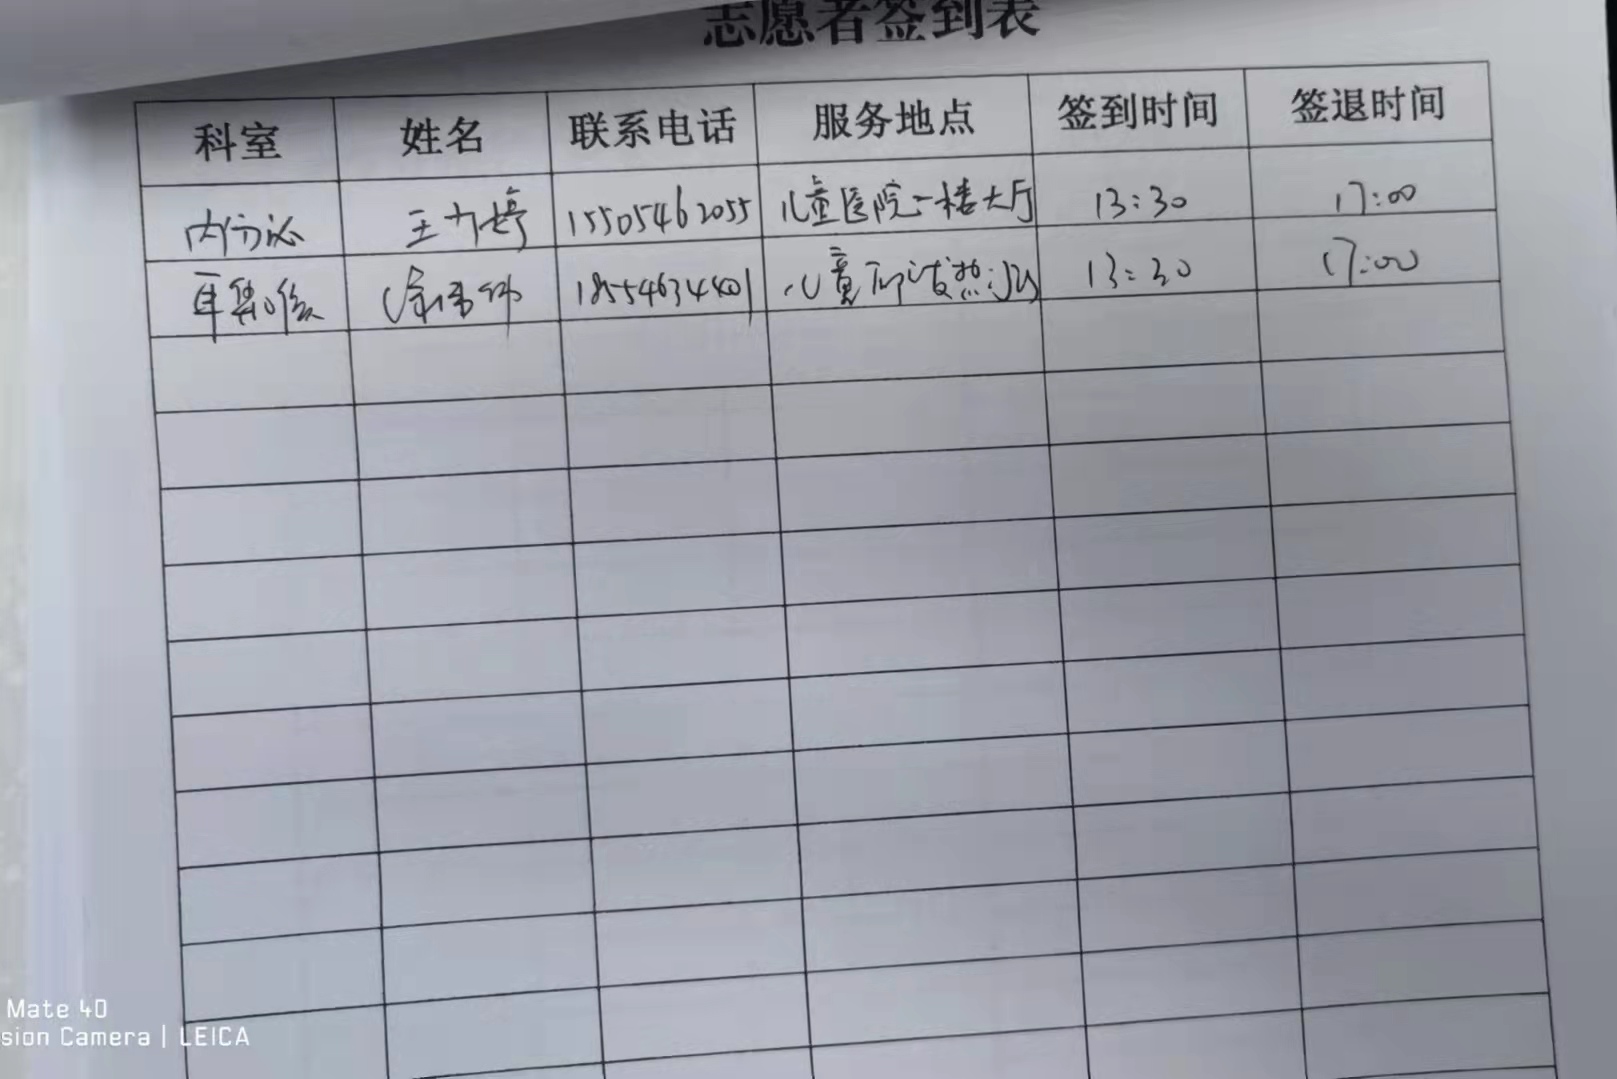 志愿者签到表
科室 姓名 联系电话 服务地点 签到时间 签退时间
内分泌 王力婷 15505462055 儿童医院一楼大厅 13:30 17:00
耳鼻喉 18554634401 儿童 发热 13:30 17:00
Mate 40
sion Camera | LEICA